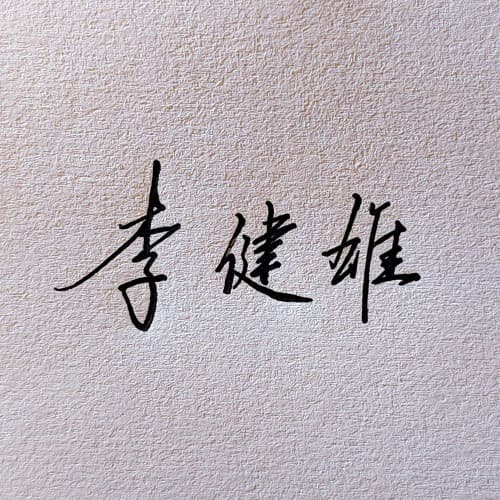 李健雄